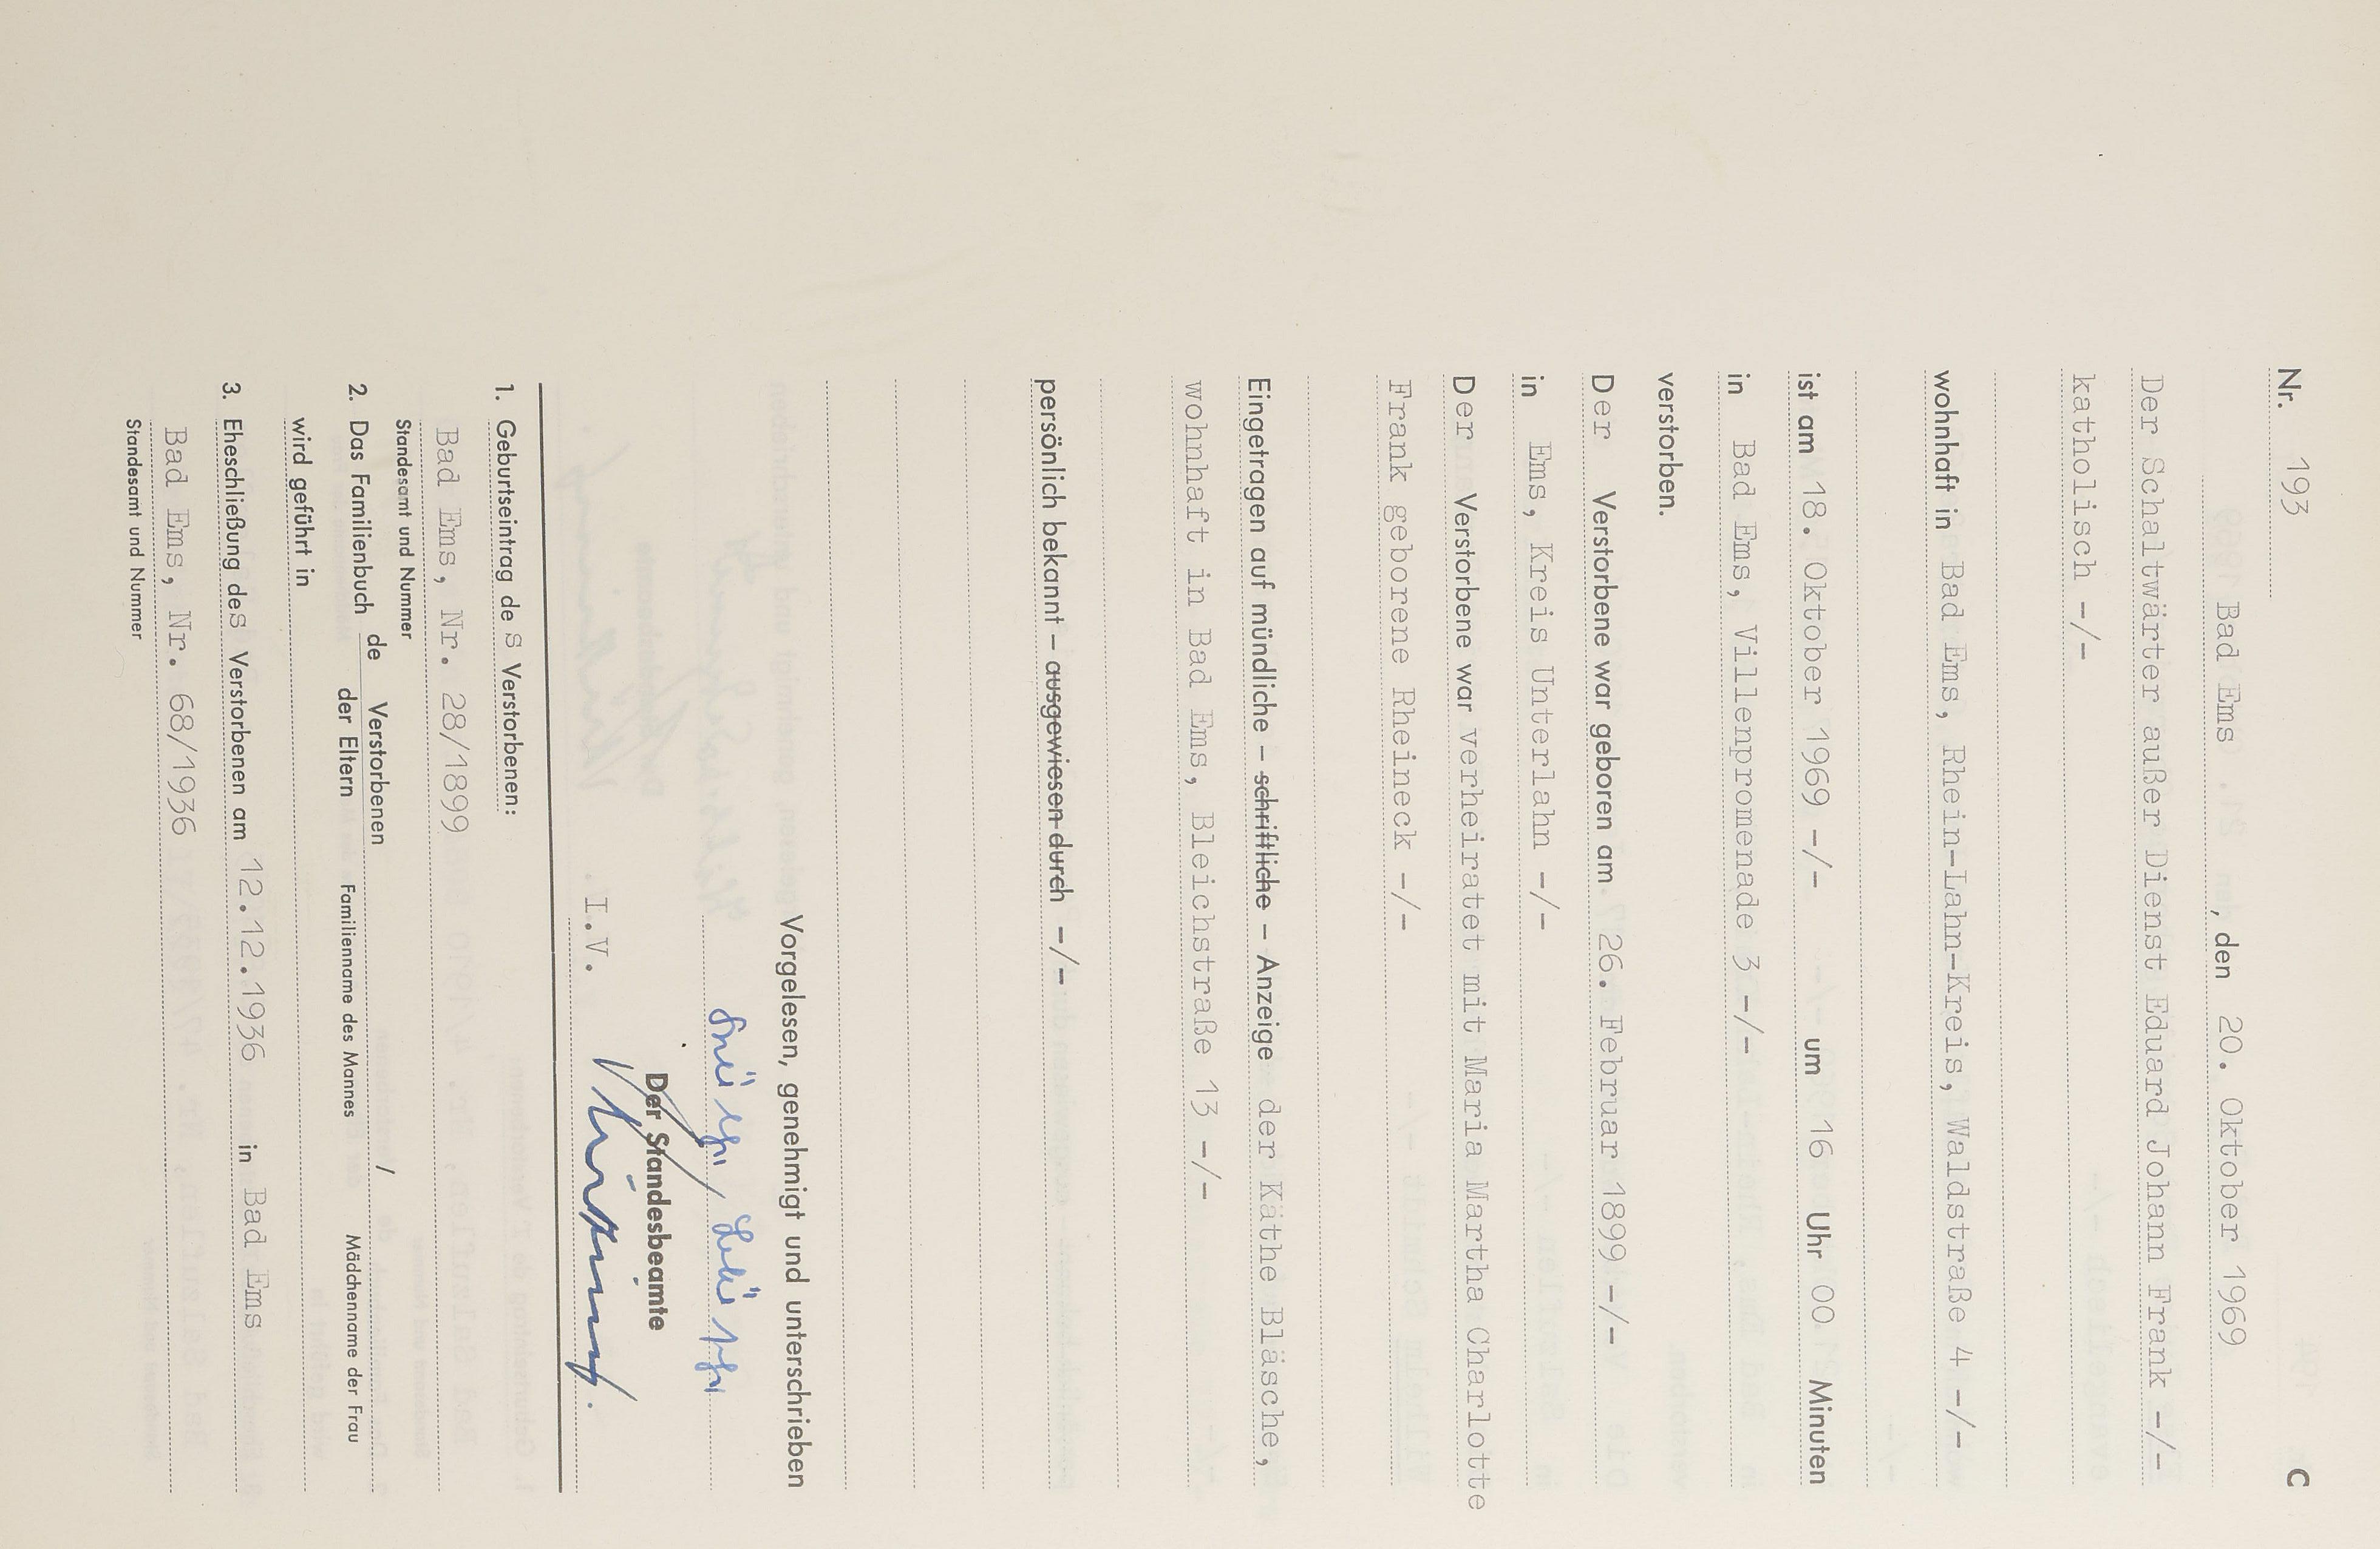 Nr. 193 C
Bad Ems, den 20. Oktober 1969
Der Schaltwärter außer Dienst Eduard Johann Frank -/-
katholisch -/-
wohnhaft in Bad Ems, Rhein-Lahn-Kreis, Waldstraße 4 -/-
ist am 18. Oktober 1969 -/- um 16 Uhr 00 Minuten
in Bad Ems, Villenpromenade 3 -/-
verstorben.
Der Verstorbene war geboren am 26. Februar 1899 -/-
in Ems, Kreis Unterlahn -/-
Der Verstorbene war verheiratet mit Maria Martha Charlotte
Frank geborene Rheineck -/-
Eingetragen auf mündliche – schriftliche – Anzeige der Käthe Bläsche,
wohnhaft in Bad Ems, Bleichstraße 13 -/-
persönlich bekannt – ausgewiesen durch -/-
Vorgelesen, genehmigt und unterschrieben
Der Standesbeamte
I.V.
1. Geburtseintrag des Verstorbenen:
Bad Ems, Nr. 28/1899
Standesamt und Nummer
2. Das Familienbuch de Verstorbenen /
der Eltern Familienname des Mannes Mädchenname der Frau
wird geführt in
3. Eheschließung des Verstorbenen am 12.12.1936 in Bad Ems
Bad Ems, Nr. 68/1936
Standesamt und Nummer